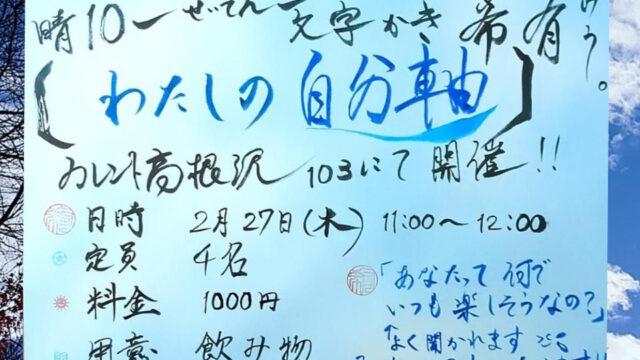 晴10一ぜてん 文字かき 希有
けう。
〔わたしの自分軸〕
カレント高根沢 103にて 開催!!
日時 2月27日(木) 11:00〜12:00
定員 4名
料金 1000円
用意 飲み物
「あなたって 何で
いつも 楽しそうなの?」
なく聞かれます